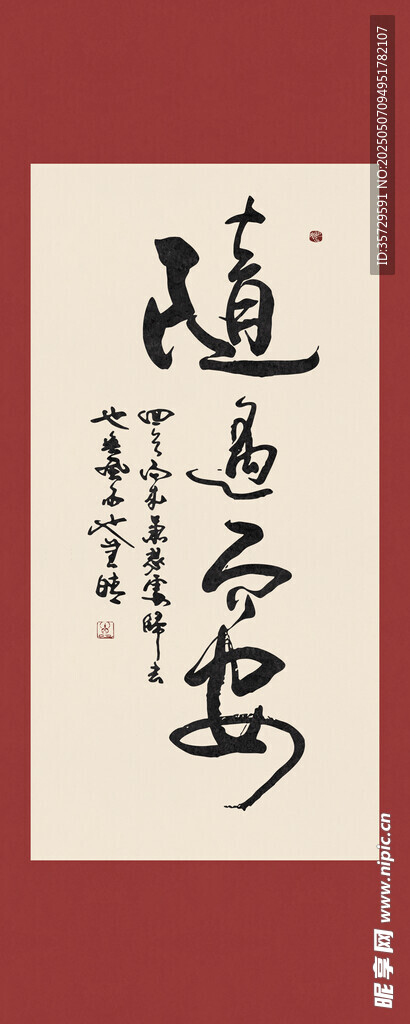 随遇而安
回首向来萧瑟处归去
也无风雨也无晴
ID:35729591 NO:20250507094951782107
昵享网 www.nipic.cn